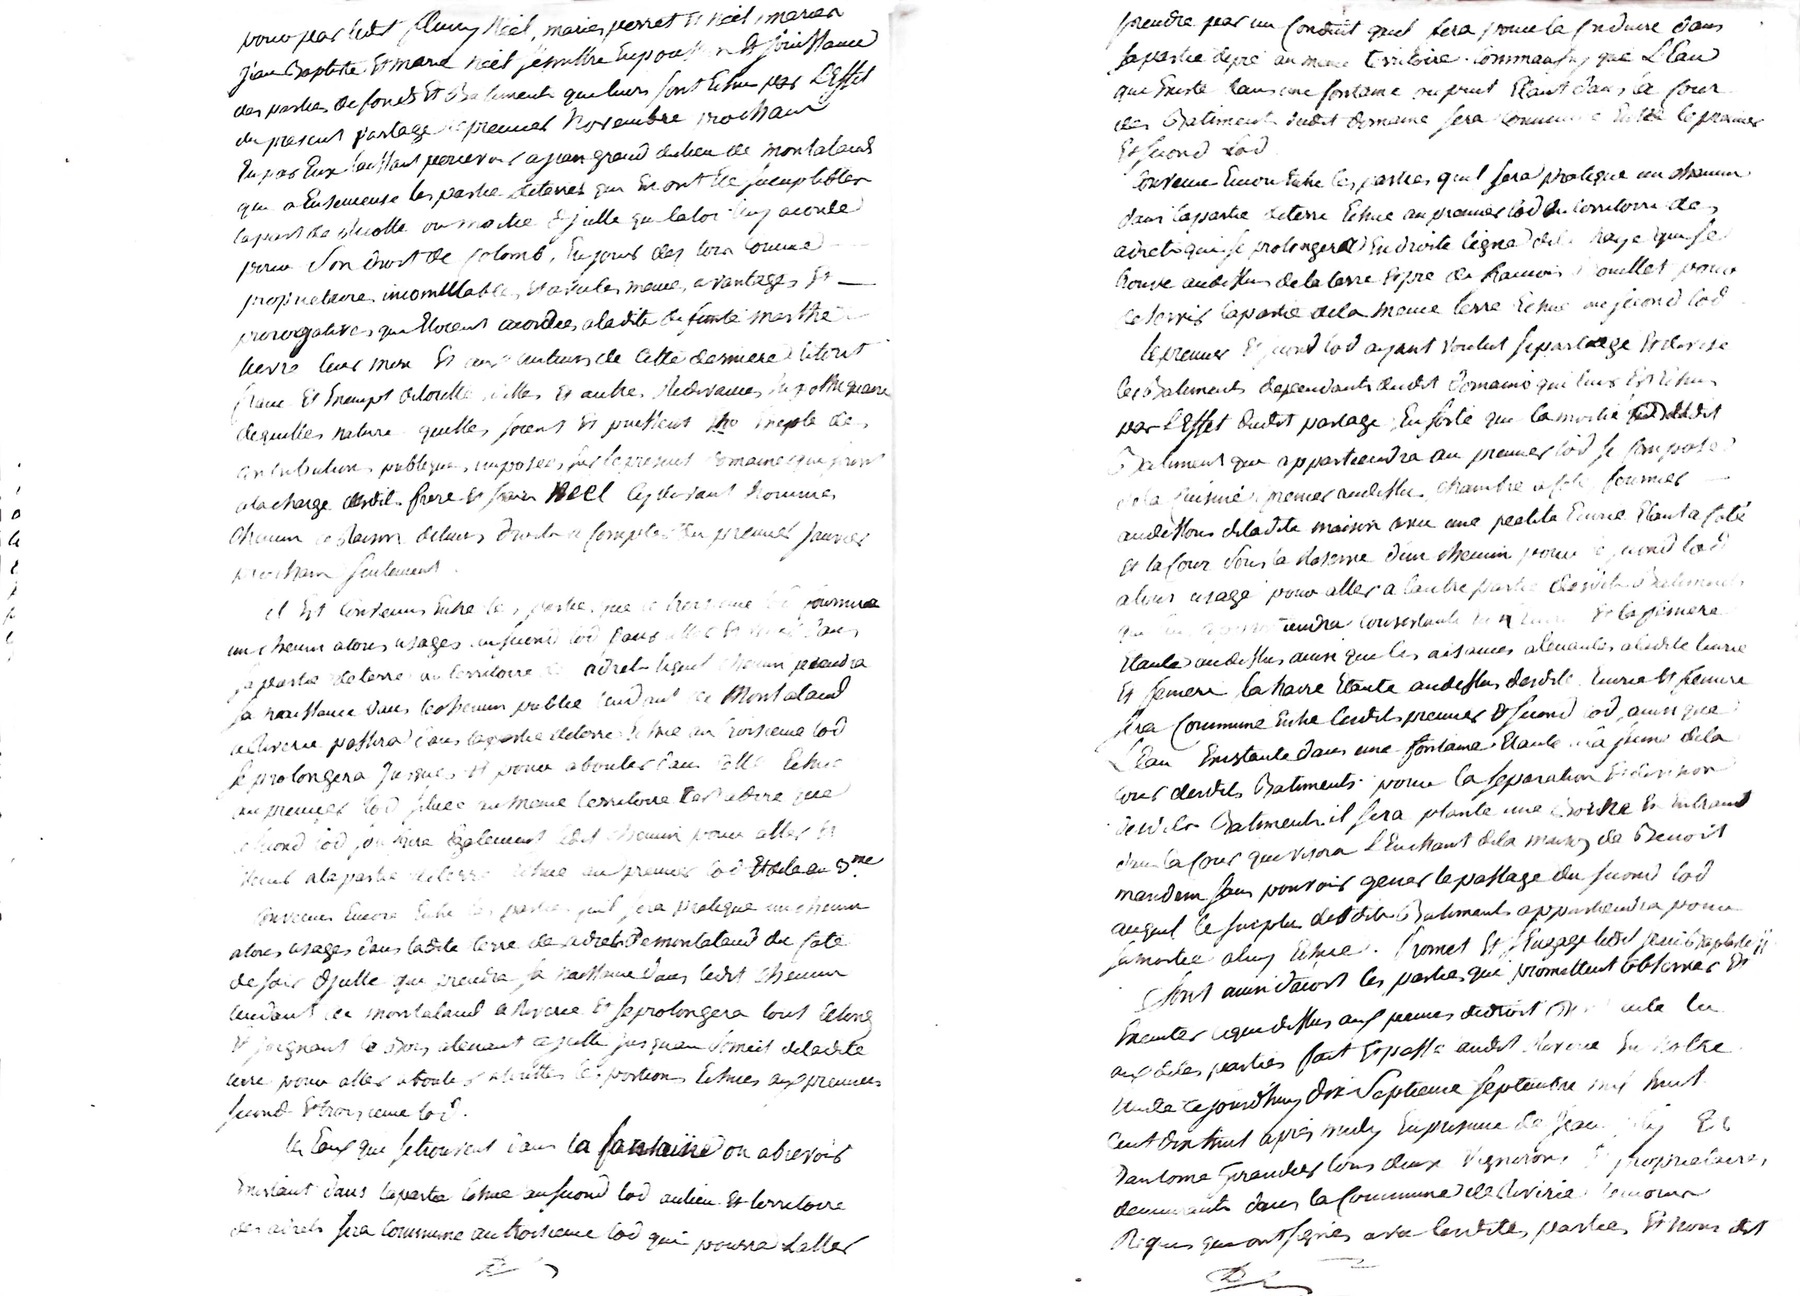 pour par ledit fleury Néel, marie perret et Néel, marier
jean Baptiste Et marie Néel se mettre En possession Et jouissance
des parties de fonds Et Batiments que leurs sont Echus par L'Effet
du present partage le premier Novembre prochain
En par Eux laissant percevoir a jean grand du lieu de montaland
qui a Ensemensé les partie de terres qui En ont Eté suceptibles
la part de Recolte ou moitie d'jcelle que la loi luy acorde
pour son droit de Colomb, En jouir des lors comme
propriétaire, incomutable, Et avec les meme, avantages Et
prerogatives que Etoient acordées a ladite defunte marthe
leur mere Et aux auteurs de cette derniere le tout
franc Et Exempt de toutte dettes Et autres Redevances hypothequaire
de quelles nature quelles soient Et puissent Etre Exepte des
contributions publiques, imposées sur le present Domaine qui seront
a la charge desdits frere Et soeur Néel cy devant nommés
chacun En Raison de leurs droits a Compter du premier janvier
prochain seulement.
il Est Convenus Entre les parties que le troisieme lod fournira
un chemin a tous usages au second lod pour aller Et venir dans
sa partie de terre au territoire des adrets lequel chemin prendra
sa naissance dans le chemin public tendant de Montaland
a Riverie passera dans la partie de terre Echue au troisieme lod
se prolongera jusques Et pour aboutir dans Celle Echue
au premier lod située au meme territoire C'est a dire que
le second lod souffrira Egalement ledit chemin pour aller Et
venir a la partie de terre Echue au premier lod Et de la au 3.me
Convenus Encore Entre les parties quil sera pratiqué un chemin
a tous usages dans ladite terre des adrets de montaland du Coté
de soir d'jcelle qui prendra sa naissance dans ledit chemin
tendant de montaland a Riverie Et se prolongera tout le long
Et joignant le Bois atenant a jcelle jusquau sommet de ladite
terre pour aller aboutir a toutes les portions Echues aux premier
second Et troisieme lod.
les Eaux qui se trouvent dans la fontaine ou abrevoir
Existant dans la partie Echue au second lod au lieu Et territoire
des adrets sera Commune au troisieme lod qui poura Laller
prendre par un Conduit quil fera pour la Conduire dans
sa partie de pré au meme territoire. Comme aussy que L'Eau
qui Existe dans une fontaine ou puit Etant dans la Cour
des Batiments dudit domaine sera Commune Entre le premier
Et second Lod.
Convenu Encore Entre les parties quil sera pratiqué un chemin
dans la partie de terre Echue au premier lod du territoire des
adrets qui se prolongera En droite ligne de la haye qui se
trouve audessus de la terre Et pré de francois pour
deservir la partie de la meme terre Echue au second lod
le premier Et second lod ayant voulut separtage Et divise
les Batiments dependants dudit domaine qui leurs Est Echus
par L'Effet dudit partage, En sorte que la moitié dudit
Batiment qui appartiendra au premier lod se Compose
de la Cuisine, premier audessus, chambre a Coté fournier
audessous de ladite maison avec une peatite Ecurie Etant a Coté
Et la Cour Sous la Reserve d'un chemin pour le second lod
a tous usage pour aller a l'autre partie desdits Batiments
qui luy appartiendra Consistante En Ecurie Et la feniere
Etante audessus ainsi que les aisances atenantes a ladite Ecurie
Et feniere la haire Etante audessus desdits Ecurie Et feniere
sera Commune Entre lesdits premier Et second lod, ainsi que
L'Eau Existante dans une fontaine Etante de la
cour desdits Batiments. pour la separation Et division
desdits Batiments il sera planté une Borne En Entrant
dans la Cour qui visera L'Enchant de la maison de Benoit
mandrin sans pouvoir gener le passage du second lod
auquel le surplus desdits Batiments appartiendra pour
sa moitie a luy Echue. Promet Et S'Engage ledit jean Baptiste
Sont ainsi d'acort les parties qui promettent observer Et
Executer ce que dessus aux peines de droit
aux dites parties fait Et passé audit Riverie En notre
Etude ce jourd'huy dix Septieme Septembre mil huit
cent dix huit apres midy En presence de Jean Et
D'antoine Girandier tous deux vignerons Et proprietaires
demeurants dans la Commune de Riverie temoins
Requis qui ont signés avec lesdites parties Et nous dit